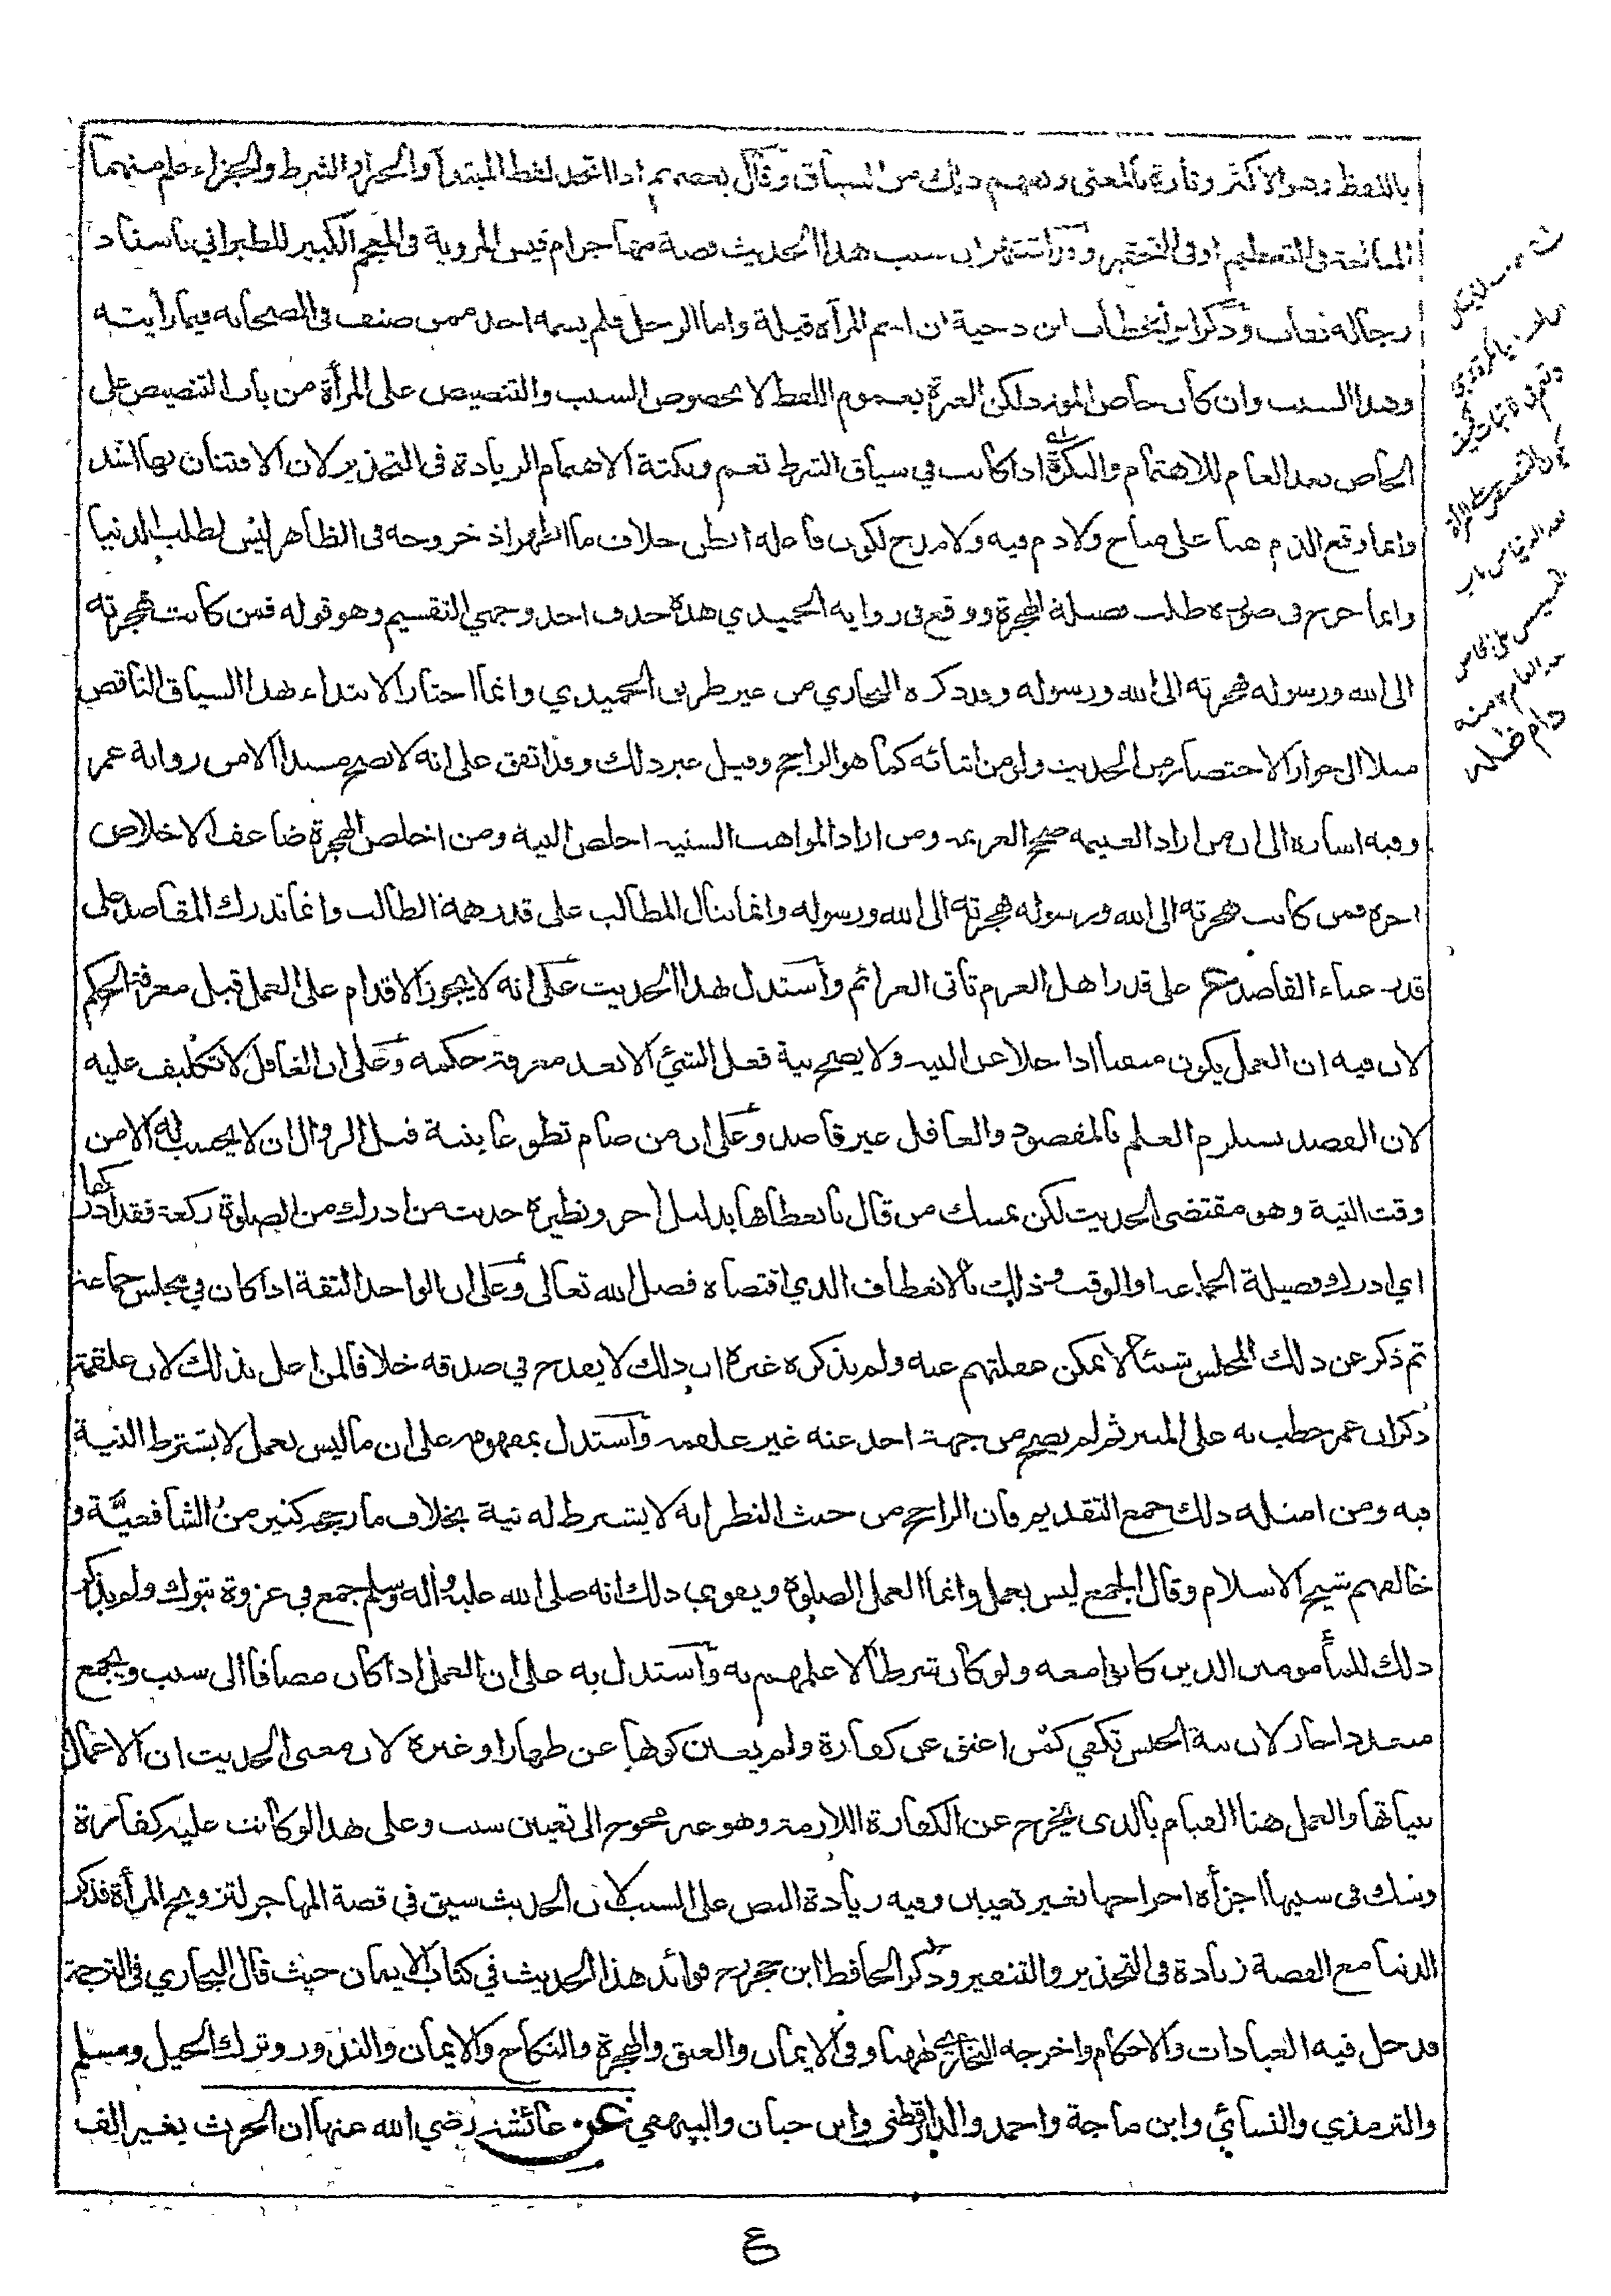 باللفظ وهو الاكثر وتارة بالمعنى ويفهم ذلك من السياق وقال بعضهم اذا اتحد لفظ المبتدأ والخبر او الشرط والجزاء علم منهما
المبالغة في التعظيم او في التحقير وقد اشتهر ان سبب هذا الحديث قصة مهاجر ام قيس المروية في المعجم الكبير للطبراني باسناد
رجاله ثقات وذكر ابو الخطاب ابن دحية ان اسم المرأة قيلة واما الرجل فلم يسمه احد ممن صنف في الصحابة فيما رأيته
وهذا السبب وان كان خاص المورد لكن العبرة بعموم اللفظ لا بخصوص السبب والتنصيص على المرأة من باب التنصيص على
الخاص بعد العام للاهتمام والنكرة اذا كانت في سياق الشرط تعم ونكتة الاهتمام الزيادة في التحذير لان الافتتان بها اشد
وانما وقع الذم هنا على مباح ولا ذم فيه ولا مدح لكون فاعله ابطن خلاف ما اظهر اذ خروجه في الظاهر ليس لطلب الدنيا
وانما خرج في صورة طلب فضيلة الهجرة ووقع في رواية الحميدي هذه حذف احد وجهي التقسيم وهو قوله فمن كانت هجرته
الى الله ورسوله فهجرته الى الله ورسوله وقد ذكره البخاري من غير طريق الحميدي وانما اختار الابتداء بهذا السياق الناقص
ميلا الى جواز الاختصار من الحديث ولو من اثنائه كما هو الراجح وقيل غير ذلك وقد اتفق على انه لا يصح مسندا الا من رواية عمر
وفيه اشارة الى ان من اراد الغنيمة صحح العزيمة ومن اراد المواهب السنية اخلص النية ومن اخلص الهجرة ضاعف الاخلاص
اجره فمن كانت هجرته الى الله ورسوله فهجرته الى الله ورسوله وانما تنال المطالب على قدر همة الطالب وانما تدرك المقاصد على
قدر عناء القاصد ع على قدر اهل العزم تأتي العزائم واستدل بهذا الحديث على انه لا يجوز الاقدام على العمل قبل معرفة الحكم
لان فيه ان العمل يكون منفيا اذا خلا عن النية ولا يصح نية فعل الشيء الا بعد معرفة حكمه وعلى ان الغافل لا تكليف عليه
لان القصد يستلزم العلم بالمقصود والغافل غير قاصد وعلى ان من صام تطوعا بنية قبل الزوال ان لا يحسب له الا من
وقت النية وهو مقتضى الحديث لكن تمسك من قال بانعطافها بدليل آخر ونظيره حديث من ادرك من الصلوة ركعة فقد ادركها
اي ادرك فضيلة الجماعة او الوقت وذلك بالانعطاف الذي اقتضاه فضل الله تعالى وعلى ان الواحد الثقة اذا كان في مجلس جماعة
ثم ذكر عن ذلك المجلس شيئا لا يمكن غفلتهم عنه ولم يذكره غيره ان ذلك لا يقدح في صدقه خلافا لمن اعل بذلك لان علقمة
ذكر ان عمر خطب به على المنبر ثم لم يصح من جهة احد عنه غير علقمة واستدل بمفهومه على ان ما ليس بعمل لا يشترط النية
فيه ومن امثلة ذلك جمع التقديم فان الراجح من حيث النظر انه لا يشترط له نية بخلاف ما رجحه كثير من الشافعية و
خالفهم شيخ الاسلام وقال الجمع ليس بعمل وانما العمل الصلوة ويقوي ذلك انه صلى الله عليه وآله وسلم جمع في غزوة تبوك ولم يذكر
ذلك للمأمومين الذين كانوا معه ولو كان شرطا لاعلمهم به واستدل به على ان العمل اذا كان مضافا الى سبب ويجمع
متعدده اجناسه لان نية الجنس تكفي كمن اعتق عن كفارة ولم يعين كونها عن ظهار او غيره لان معنى الحديث ان الاعمال
بنياتها والعمل هنا القيام بالذي يخرج عن الكفارة اللازمة وهو غير محوج الى تعيين سبب وعلى هذا لو كانت عليه كفارة
وشك في سببها اجزأه اخراجها بغير تعيين وفيه زيادة النص على السبب لان الحديث سيق في قصة المهاجر لتزويج المرأة فذكر
الدنيا مع القصة زيادة في التحذير والتنفير وذكر الحافظ ابن حجر رح فوائد هذا الحديث في كتاب الايمان حيث قال البخاري في الترجمة
فدخل فيه العبادات والاحكام واخرجه البخاري ههنا وفي الايمان والعتق والهجرة والنكاح والايمان والنذور وترك الحيل ومسلم
والترمذي والنسائي وابن ماجة واحمد والدارقطني وابن حبان والبيهقي عن عائشة رضي الله عنها ان الحرث بغير الف
دام ظله
ع